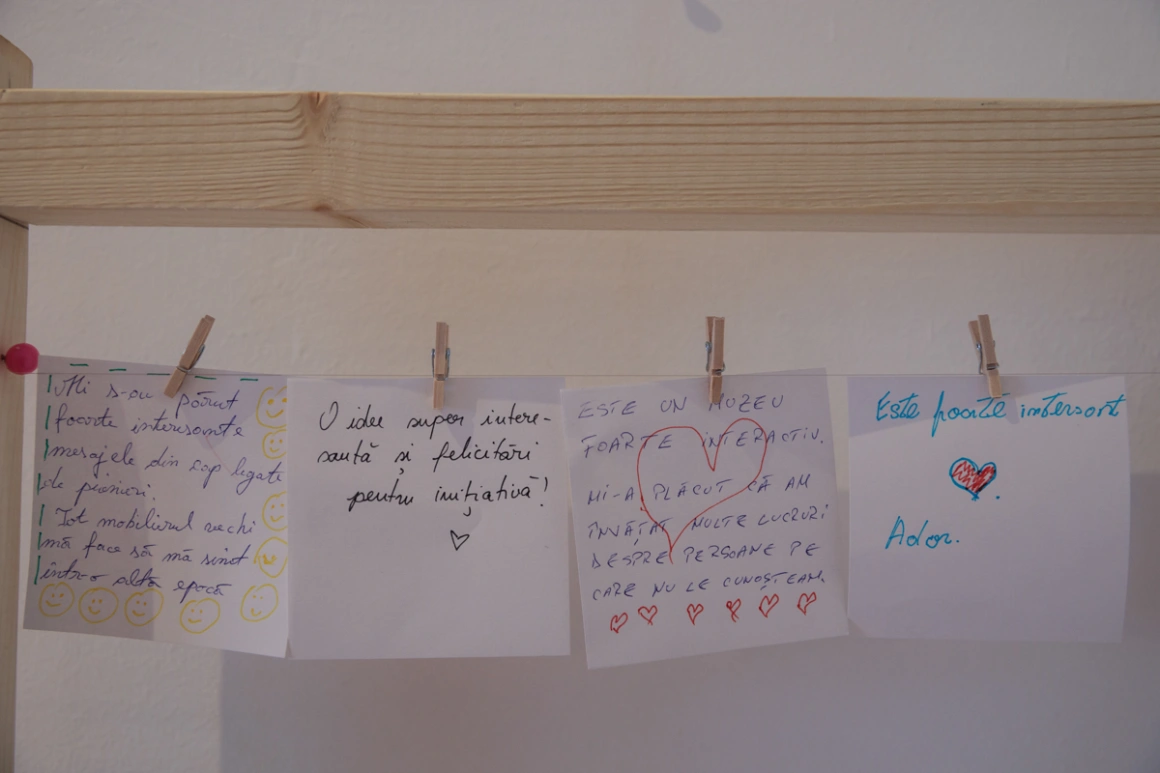 Mi s-au părut
foarte interesante
mesajele din cap legate
de pionieri.
Tot mobilierul vechi
mă face să mă simt
într-o altă epocă
O idee super intere-
santă și felicitări
pentru inițiativă!
ESTE UN MUZEU
FOARTE INTERACTIV.
MI-A PLĂCUT CĂ AM
ÎNVĂȚAT MULTE LUCRURI
DESPRE PERSOANE PE
CARE NU LE CUNOȘTEAM.
Este foarte intersant
Ador.